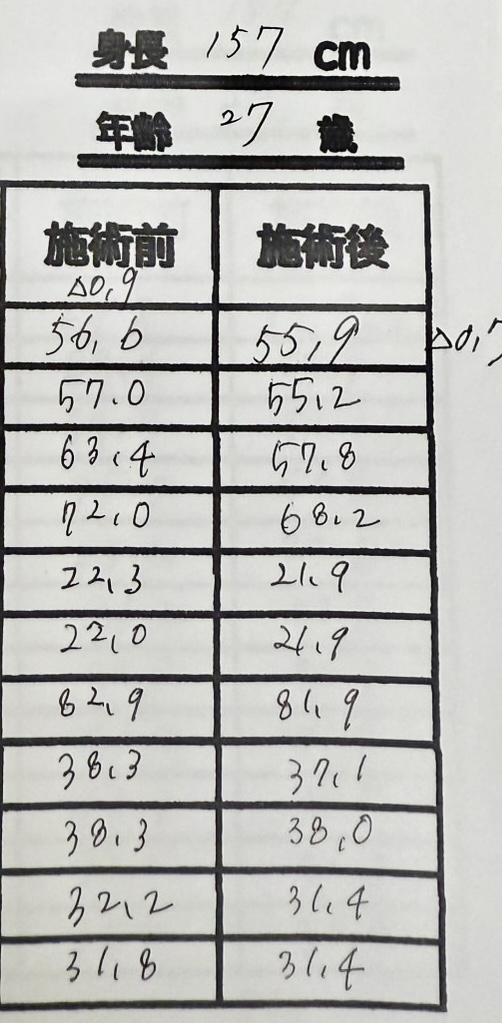 身長 157 cm
年齢 27 歳
施術前 施術後
△0,9
56,6 55,9 △0,7
57.0 55,2
63.4 57,8
72,0 68,2
22,3 21,9
22,0 21,9
82,9 81,9
38,3 37,1
38,3 38,0
32,2 31,4
31,8 31,4